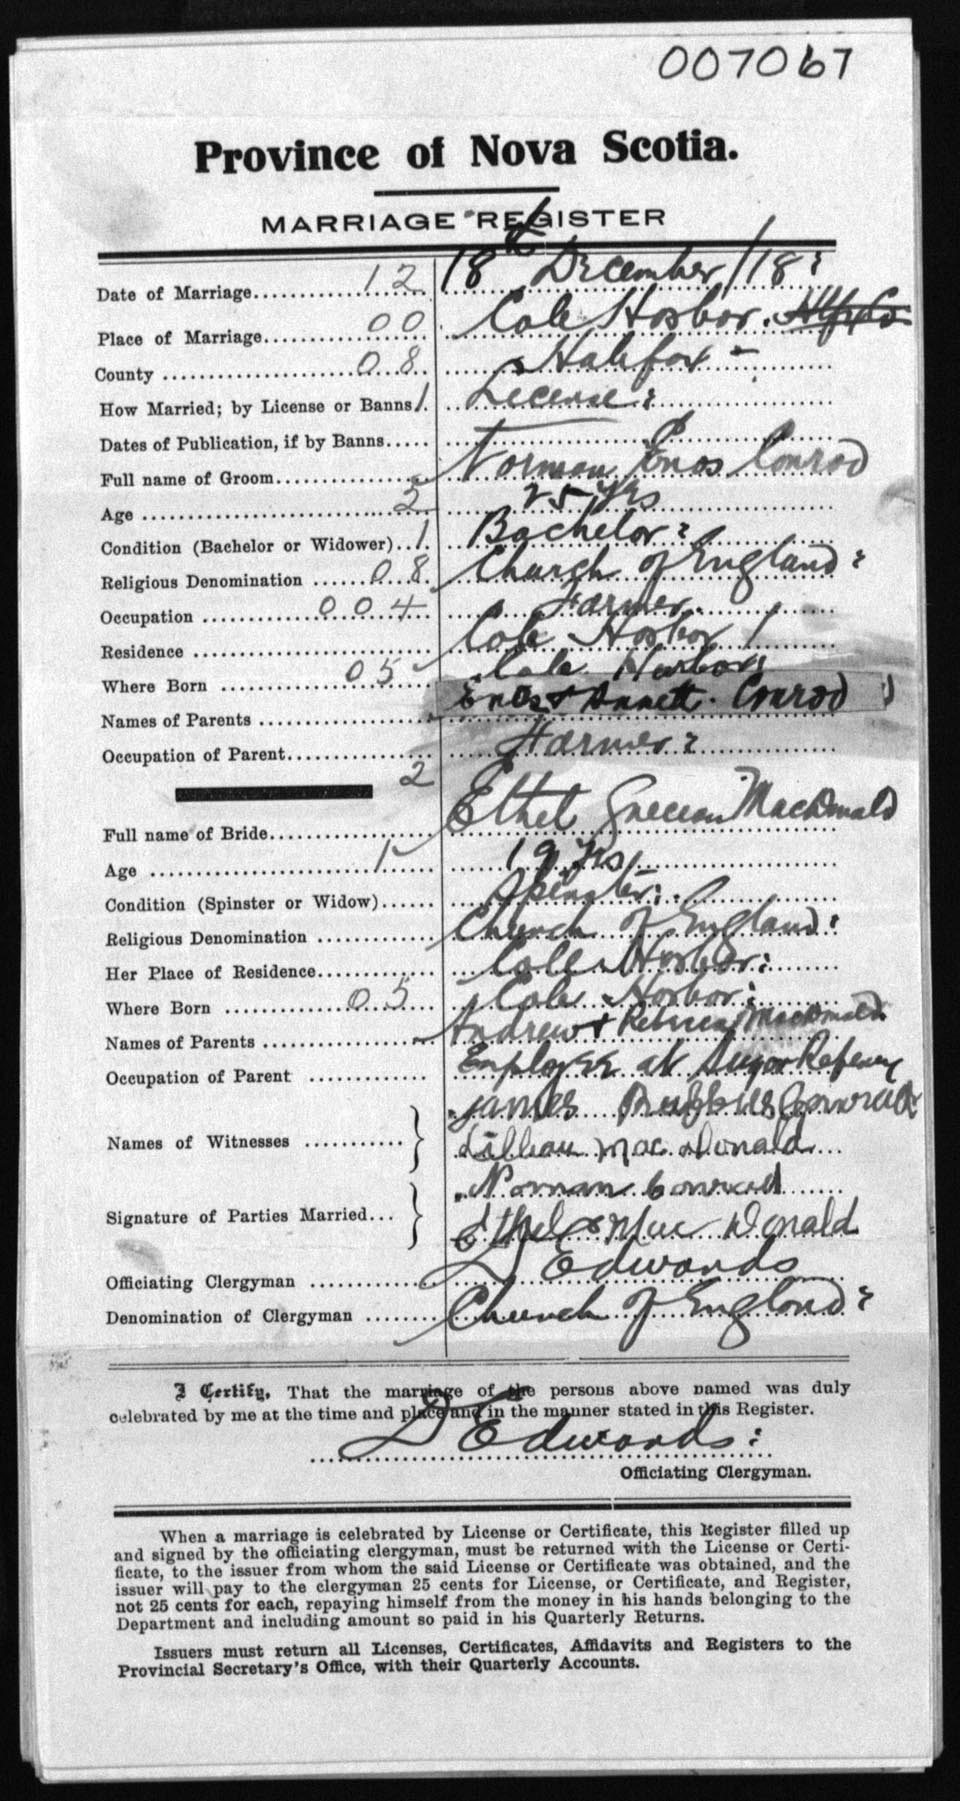 007067
Province of Nova Scotia.
MARRIAGE REGISTER
Date of Marriage 12 18th December/18:
Place of Marriage 00 Cole Harbor.
County 08 Halifax -
How Married; by License or Banns 1 License:
Dates of Publication, if by Banns
Full name of Groom Norman Enos Conrod
Age 2 25 yrs
Condition (Bachelor or Widower) 1 Bachelor:
Religious Denomination 08 Church of England:
Occupation 004 Farmer.
Residence Cole Harbor
Where Born 05 Cole Harbor
Names of Parents Enos & Annett. Conrod
Occupation of Parent Farmer:
2
Full name of Bride Ethel MacDonald
Age 1 19 yrs
Condition (Spinster or Widow) Spinster:
Religious Denomination Church of England:
Her Place of Residence Cole Harbor:
Where Born 05 Cole Harbor:
Names of Parents Andrew & Rebecca MacDonald
Occupation of Parent Employee at Sugar Refinery
Names of Witnesses James Conrad
Lillian Mac Donald
Signature of Parties Married Norman Conrad
Ethel G Mac Donald
Officiating Clergyman D Edwards
Denomination of Clergyman Church of England:
I Certify, That the marriage of the persons above named was duly
celebrated by me at the time and place and in the manner stated in this Register.
D Edwards:
Officiating Clergyman.
When a marriage is celebrated by License or Certificate, this Register filled up
and signed by the officiating clergyman, must be returned with the License or Certi-
ficate, to the issuer from whom the said License or Certificate was obtained, and the
issuer will pay to the clergyman 25 cents for License, or Certificate, and Register,
not 25 cents for each, repaying himself from the money in his hands belonging to the
Department and including amount so paid in his Quarterly Returns.
Issuers must return all Licenses, Certificates, Affidavits and Registers to the
Provincial Secretary's Office, with their Quarterly Accounts.